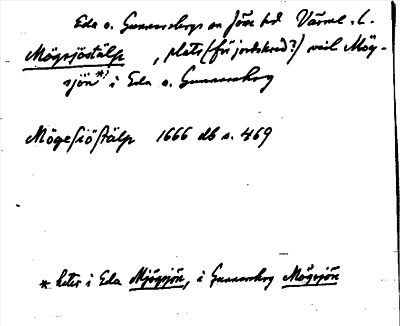 Eda o. Gunnarskogs sn Jösse hd Värml. l.
Mögesjöstälp, plats (för jordskred?) vid Mög-
sjön*) i Eda o. Gunnarskog
Mögesiöstälp 1666 db s. 469
* heter i Eda Mjögsjön, i Gunnarskog Mögsjön